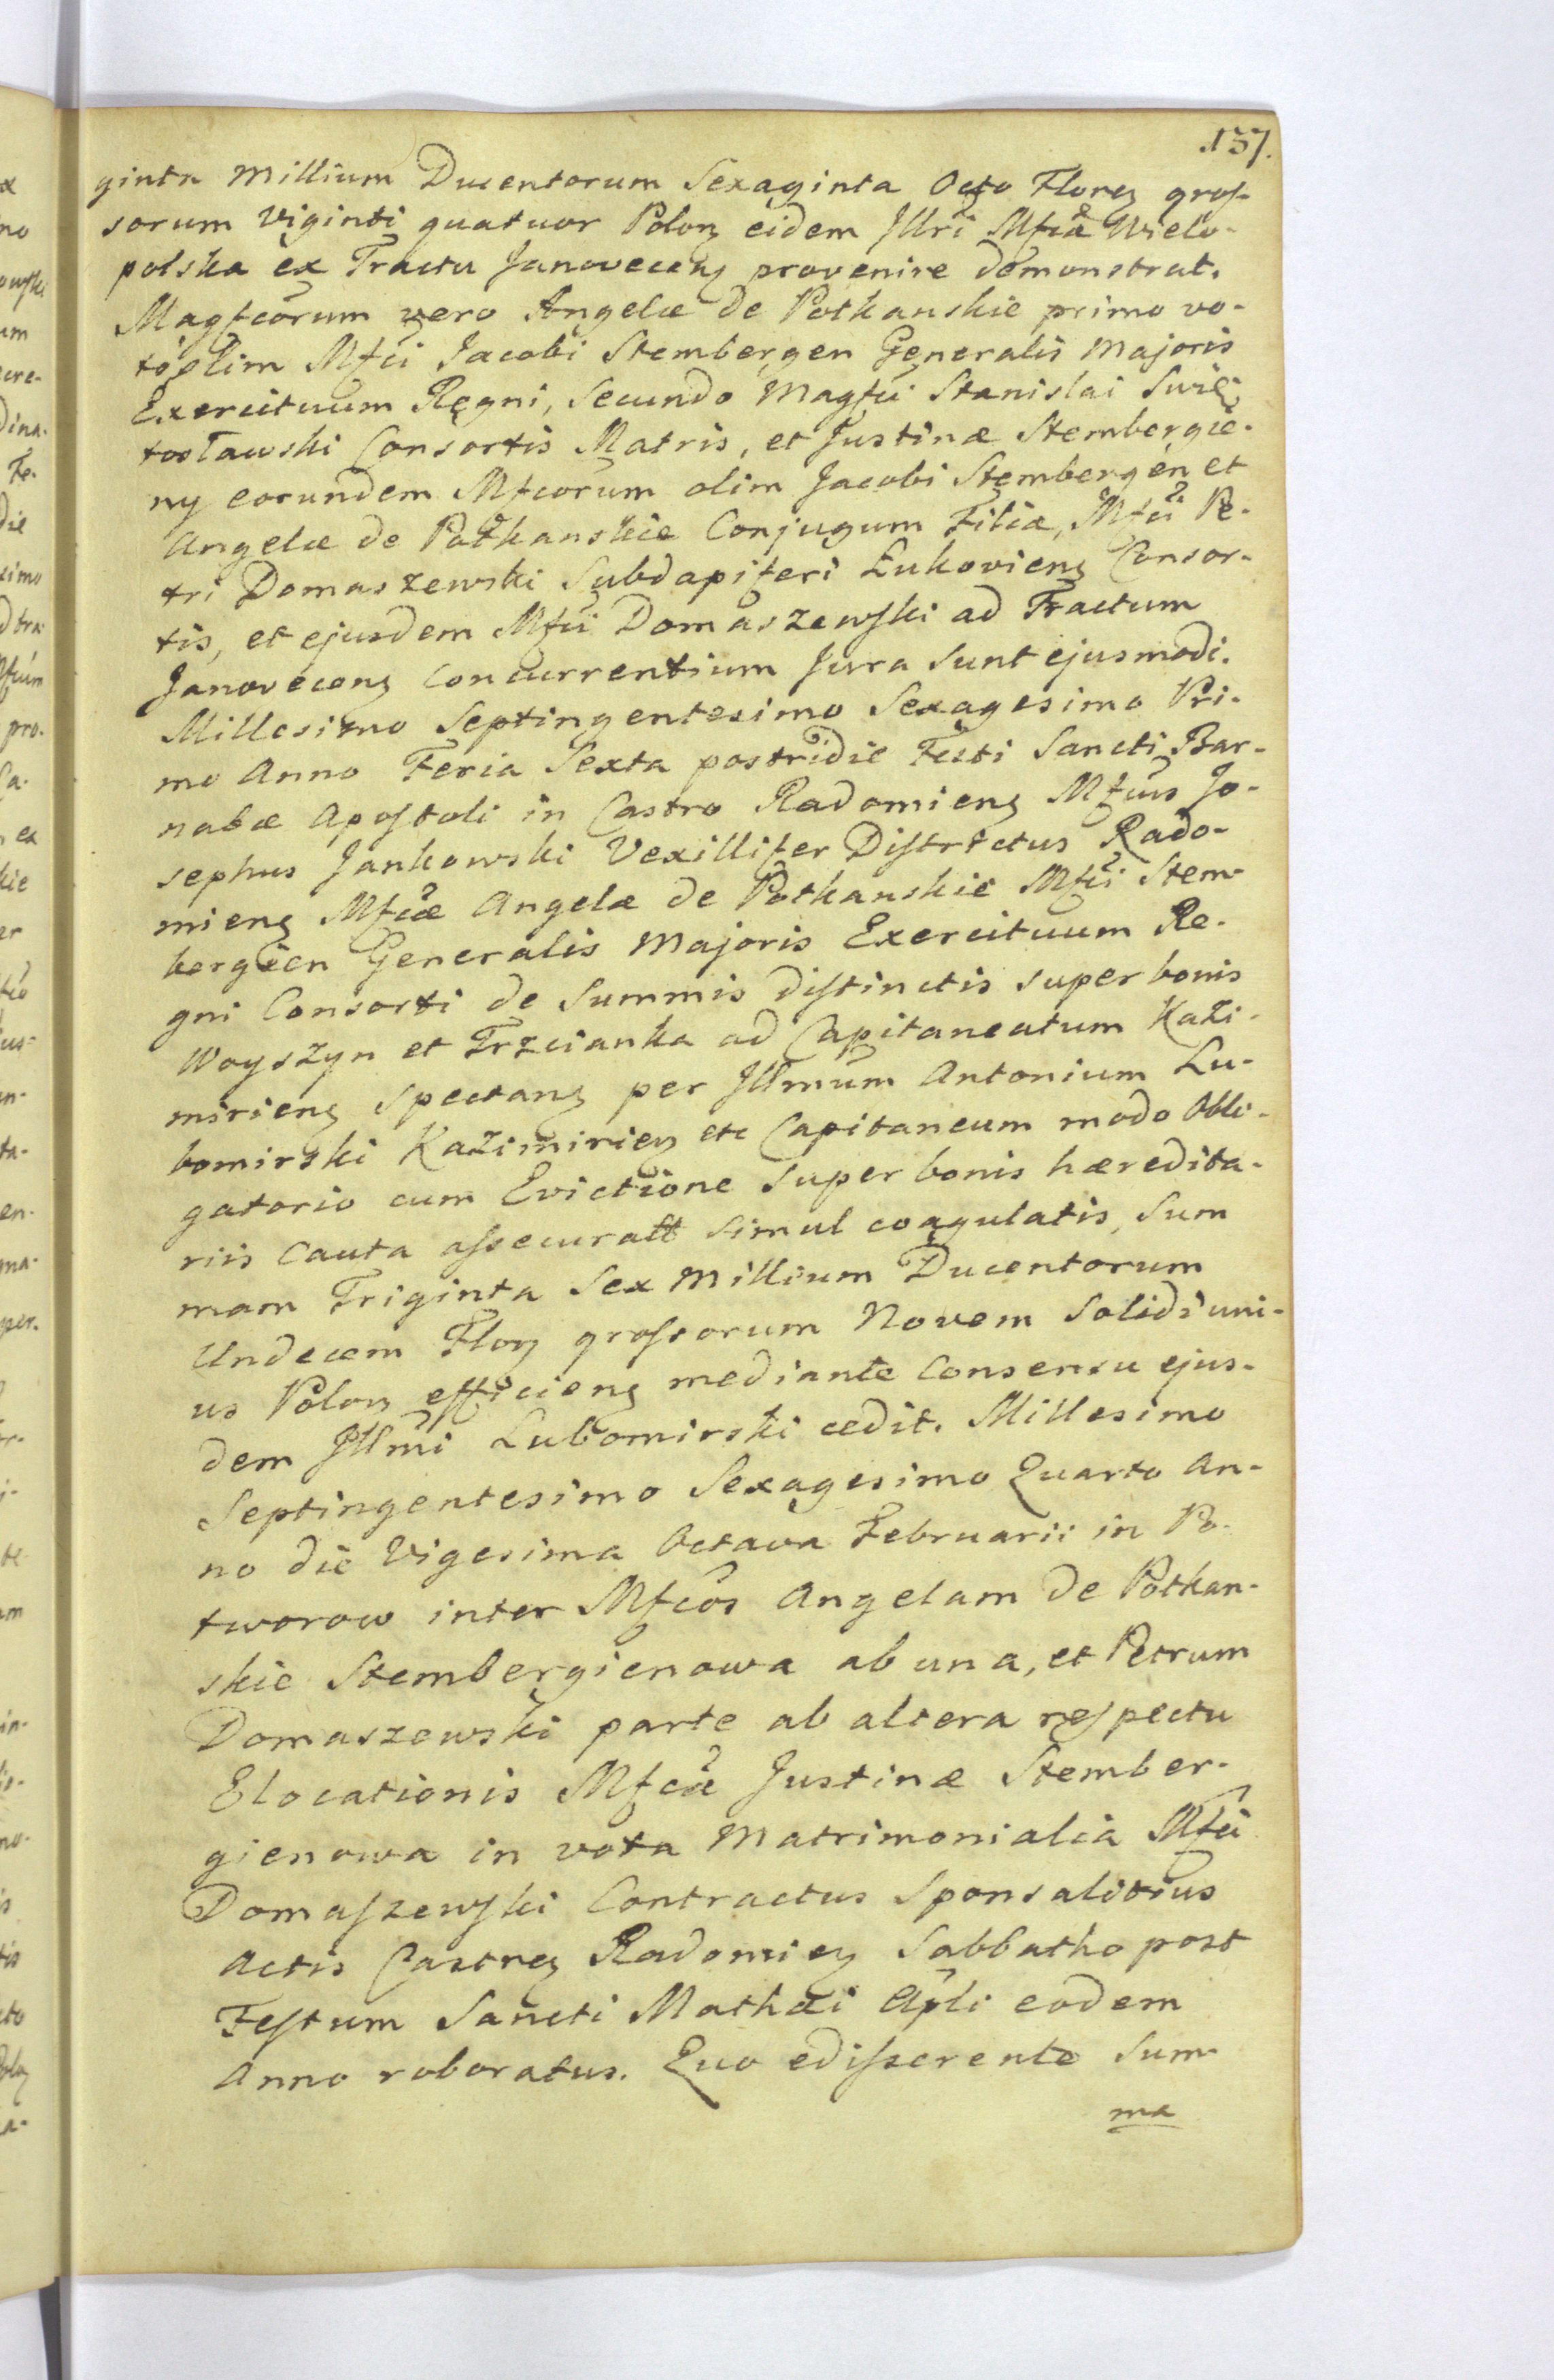 137.
ginta Millium Ducentorum Sexaginta Octo Floreꝫ gros-
sorum Viginti quatuor Polonꝫ eidem Illri Mfcæ Wielo-
polska ex Tractu Janovecenꝫ provenire demonstrat.
Magfcorum vero Angelæ de Potkanskie primo vo-
to olim Mfci Jacobi Stembergen Generalis Majoris
Exercituum Regni, Secundo Magfci Stanislai Swię-
tosławski Consortis Matris, et Justinæ Stembergie-
ny eorundem Mfcorum olim Jacobi Stembergen et
Angelæ de Potkanskie Conjugum Filiæ, Mfci Pe-
tri Domaszewski Subdapiferi Łukovienꝫ Consor-
tis, et ejusdem Mfci Domaszewski ad Tractum
Janovecenꝫ Concurrentium Jura sunt ejusmodi.
Millesimo Septingentesimo Sexagesimo Pri-
mo Anno Feria Sexta postridie Festi Sancti Bar-
nabæ Apostoli in Castro Radomienꝫ Mfcus Jo-
sephus Jankowski Vexillifer Districtus Rado-
mienꝫ Mfcæ Angelæ de Potkanskie Mfci Stem-
bergien Generalis Majoris Exercituum Re-
gni Consorti de Summis distinctis super bonis
Woyszyn et Trzcianka ad Capitaneatum Kaźi-
mirienꝫ Spectanꝫ per Illmum Antonium Lu-
bomirski Kaźimirienꝫ etc Capitaneum modo Obli-
gatorio cum Evictione super bonis hæredita-
riis Cauta assecuratt simul coagulatis, Sum
mam Triginta Sex Millium Ducentorum
Undecem Flonꝫ grossorum Novem Solidi uni-
us Polonꝫ efficienꝫ mediante Consensu ejus-
dem Illmi Lubomirski cedit. Millesimo
Septingentesimo Sexagesimo Quarto An-
no die Vigesima Octava Februarii in Po-
tworow inter Mfcos Angelam de Potkan-
skie Stembergienowa ab una, et Petrum
Domaszewski parte ab altera respectu
Elocationis Mfcæ Justinæ Stember-
gienowa in vota Matrimonialia Mfci
Domaszewski Contractus Sponsalitius
Actis Castrenꝫ Radomienꝫ Sabbatho post
Festum Sancti Mathæi Apli eodem
Anno roboratus. Quo edisserente Sum-
ma